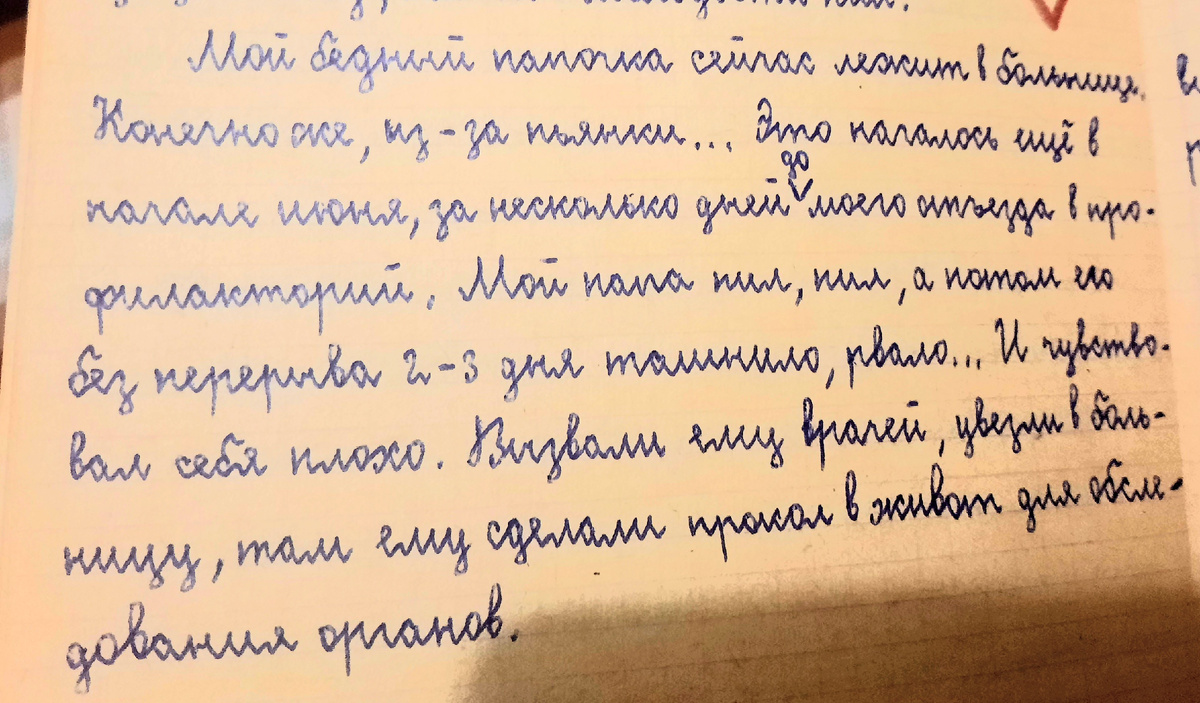 Мой бедный папочка сейчас лежит в больнице.
Конечно же, из-за пьянки... Это началось ещё в
до
начале июня, за несколько дней моего отъезда в про-
филакторий. Мой папа пил, пил, а потом его
без перерыва 2-3 дня тошнило, рвало... И чувство-
вал себя плохо. Вызвали ему врачей, увезли в боль-
ницу, там ему сделали прокол в живот для обсле-
дования органов.